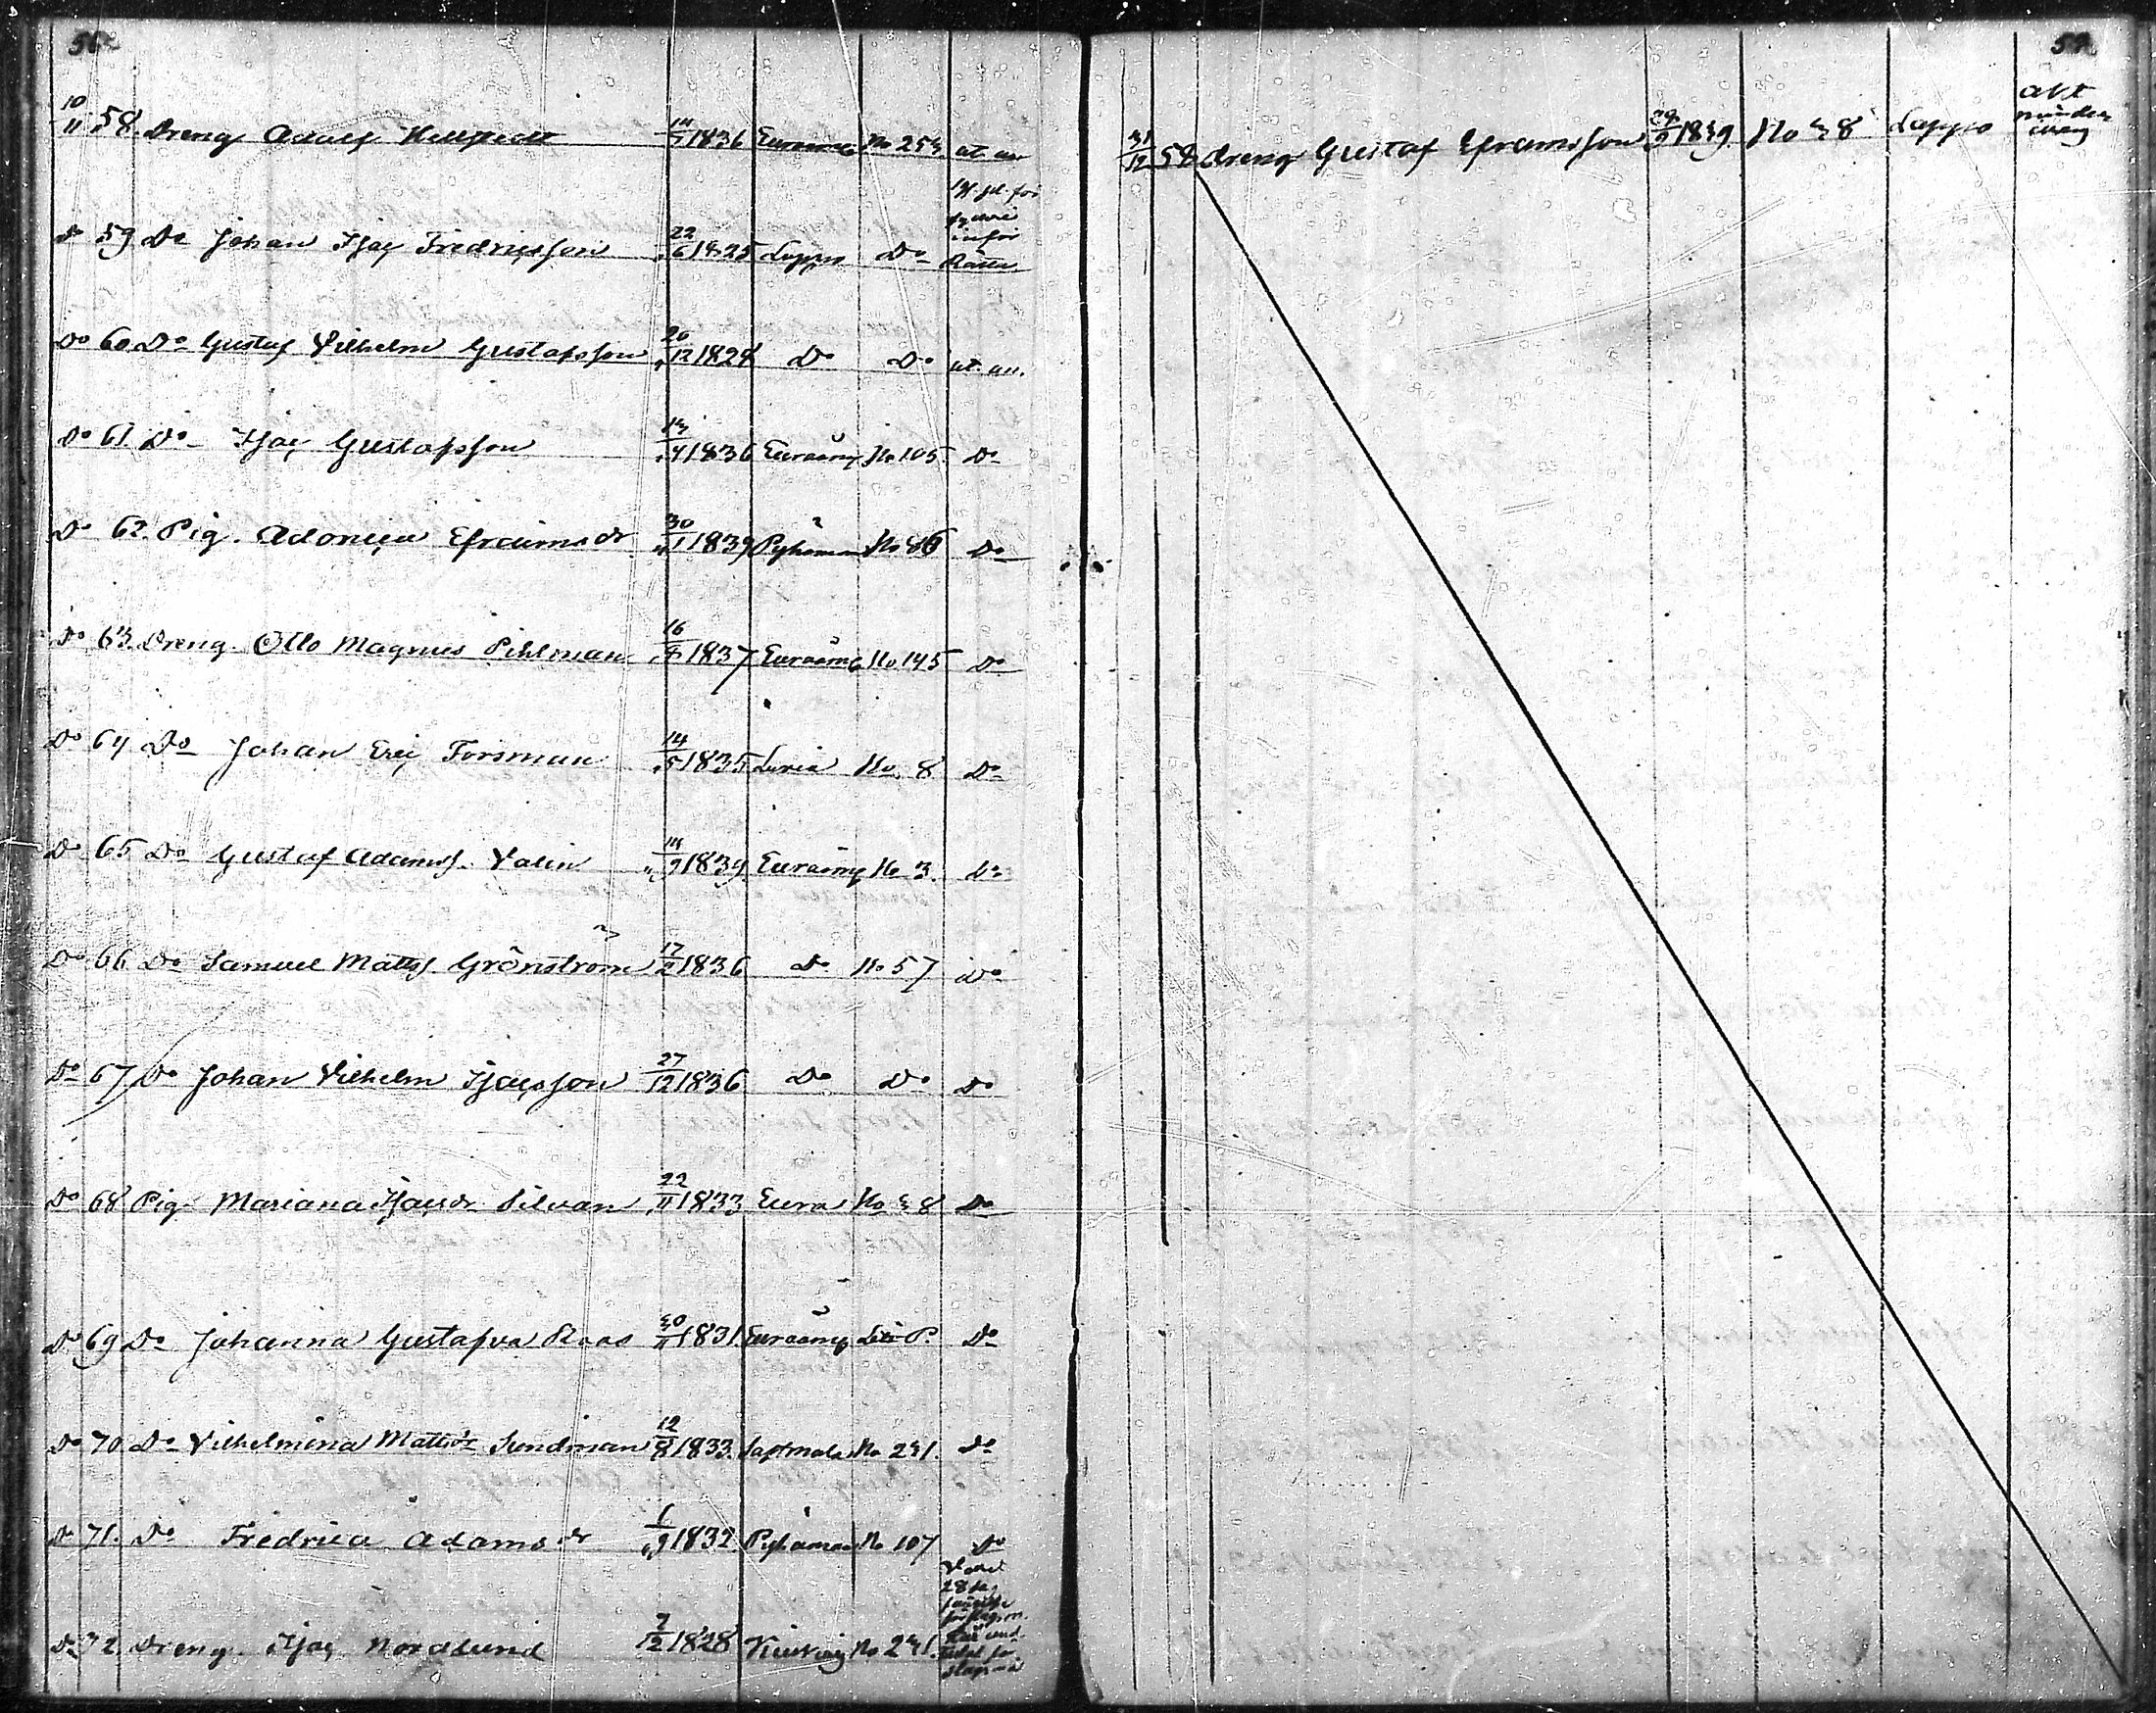 10/11 58. Dreng Adolf Hellstedt 14/5 1836 Euraåm. No 253. at. an
Do 59 Do Johan Isac Fredricsson 22/6 1825 Lappo Do
inför Rätta
Do 60 Do Gustaf Vilhelm Gustafsson 20/12 1828 Do Do at. an.
Do 61. Do Isac Gustafsson 13/4 1836 Euraåmi No 105. Do
Do 62. Pig. Adonica Efraimsdr 30/1 1839 Pyhämaa No 86 Do
Do 63. Dreng. Otto Magnus Pihlman 16/8 1837 Euraåm. No 145 Do
Do 64 Do Johan Eric Forsman 14/5 1835 Luvia No. 8 Do
Do 65 Do Gustaf Adamsf. Valin 14/9 1839. Euraåmi No 3. Do
Do 66 Do Samuel Mattsf. Grönström 17/2 1836 Do No 57 Do
Do 67 Do Johan Vilhelm Isacsson 27/12 1836 Do Do Do
Do 68 Pig. Mariana Isacsdr Silvan 22/11 1833 Eura No 38 Do
Do 69 Do Johanna Gustafva Roos 30/11 1831. Euraåmi Litt P. Do
Do 70 Do Vilhelmina Mattsdr Sundman 12/8 1833. Sastmola No 231. Do
Do 71. Do Fredrica Adamsdr 1/9 1832. Pyhämaa No 107 Do
Do 72. Dreng. Isac Nordlund 7/12 1828 Kiukais No 231.
31/12 58 Dreng Gustaf Efraimsson 29/9 1839 No 38 Lappo